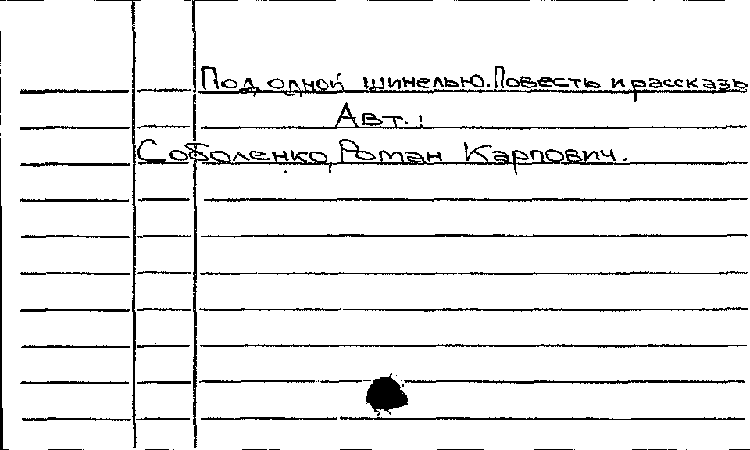 Под одной шинелью. Повесть и рассказы
Авт.:
Соболенко, Роман Карпович.